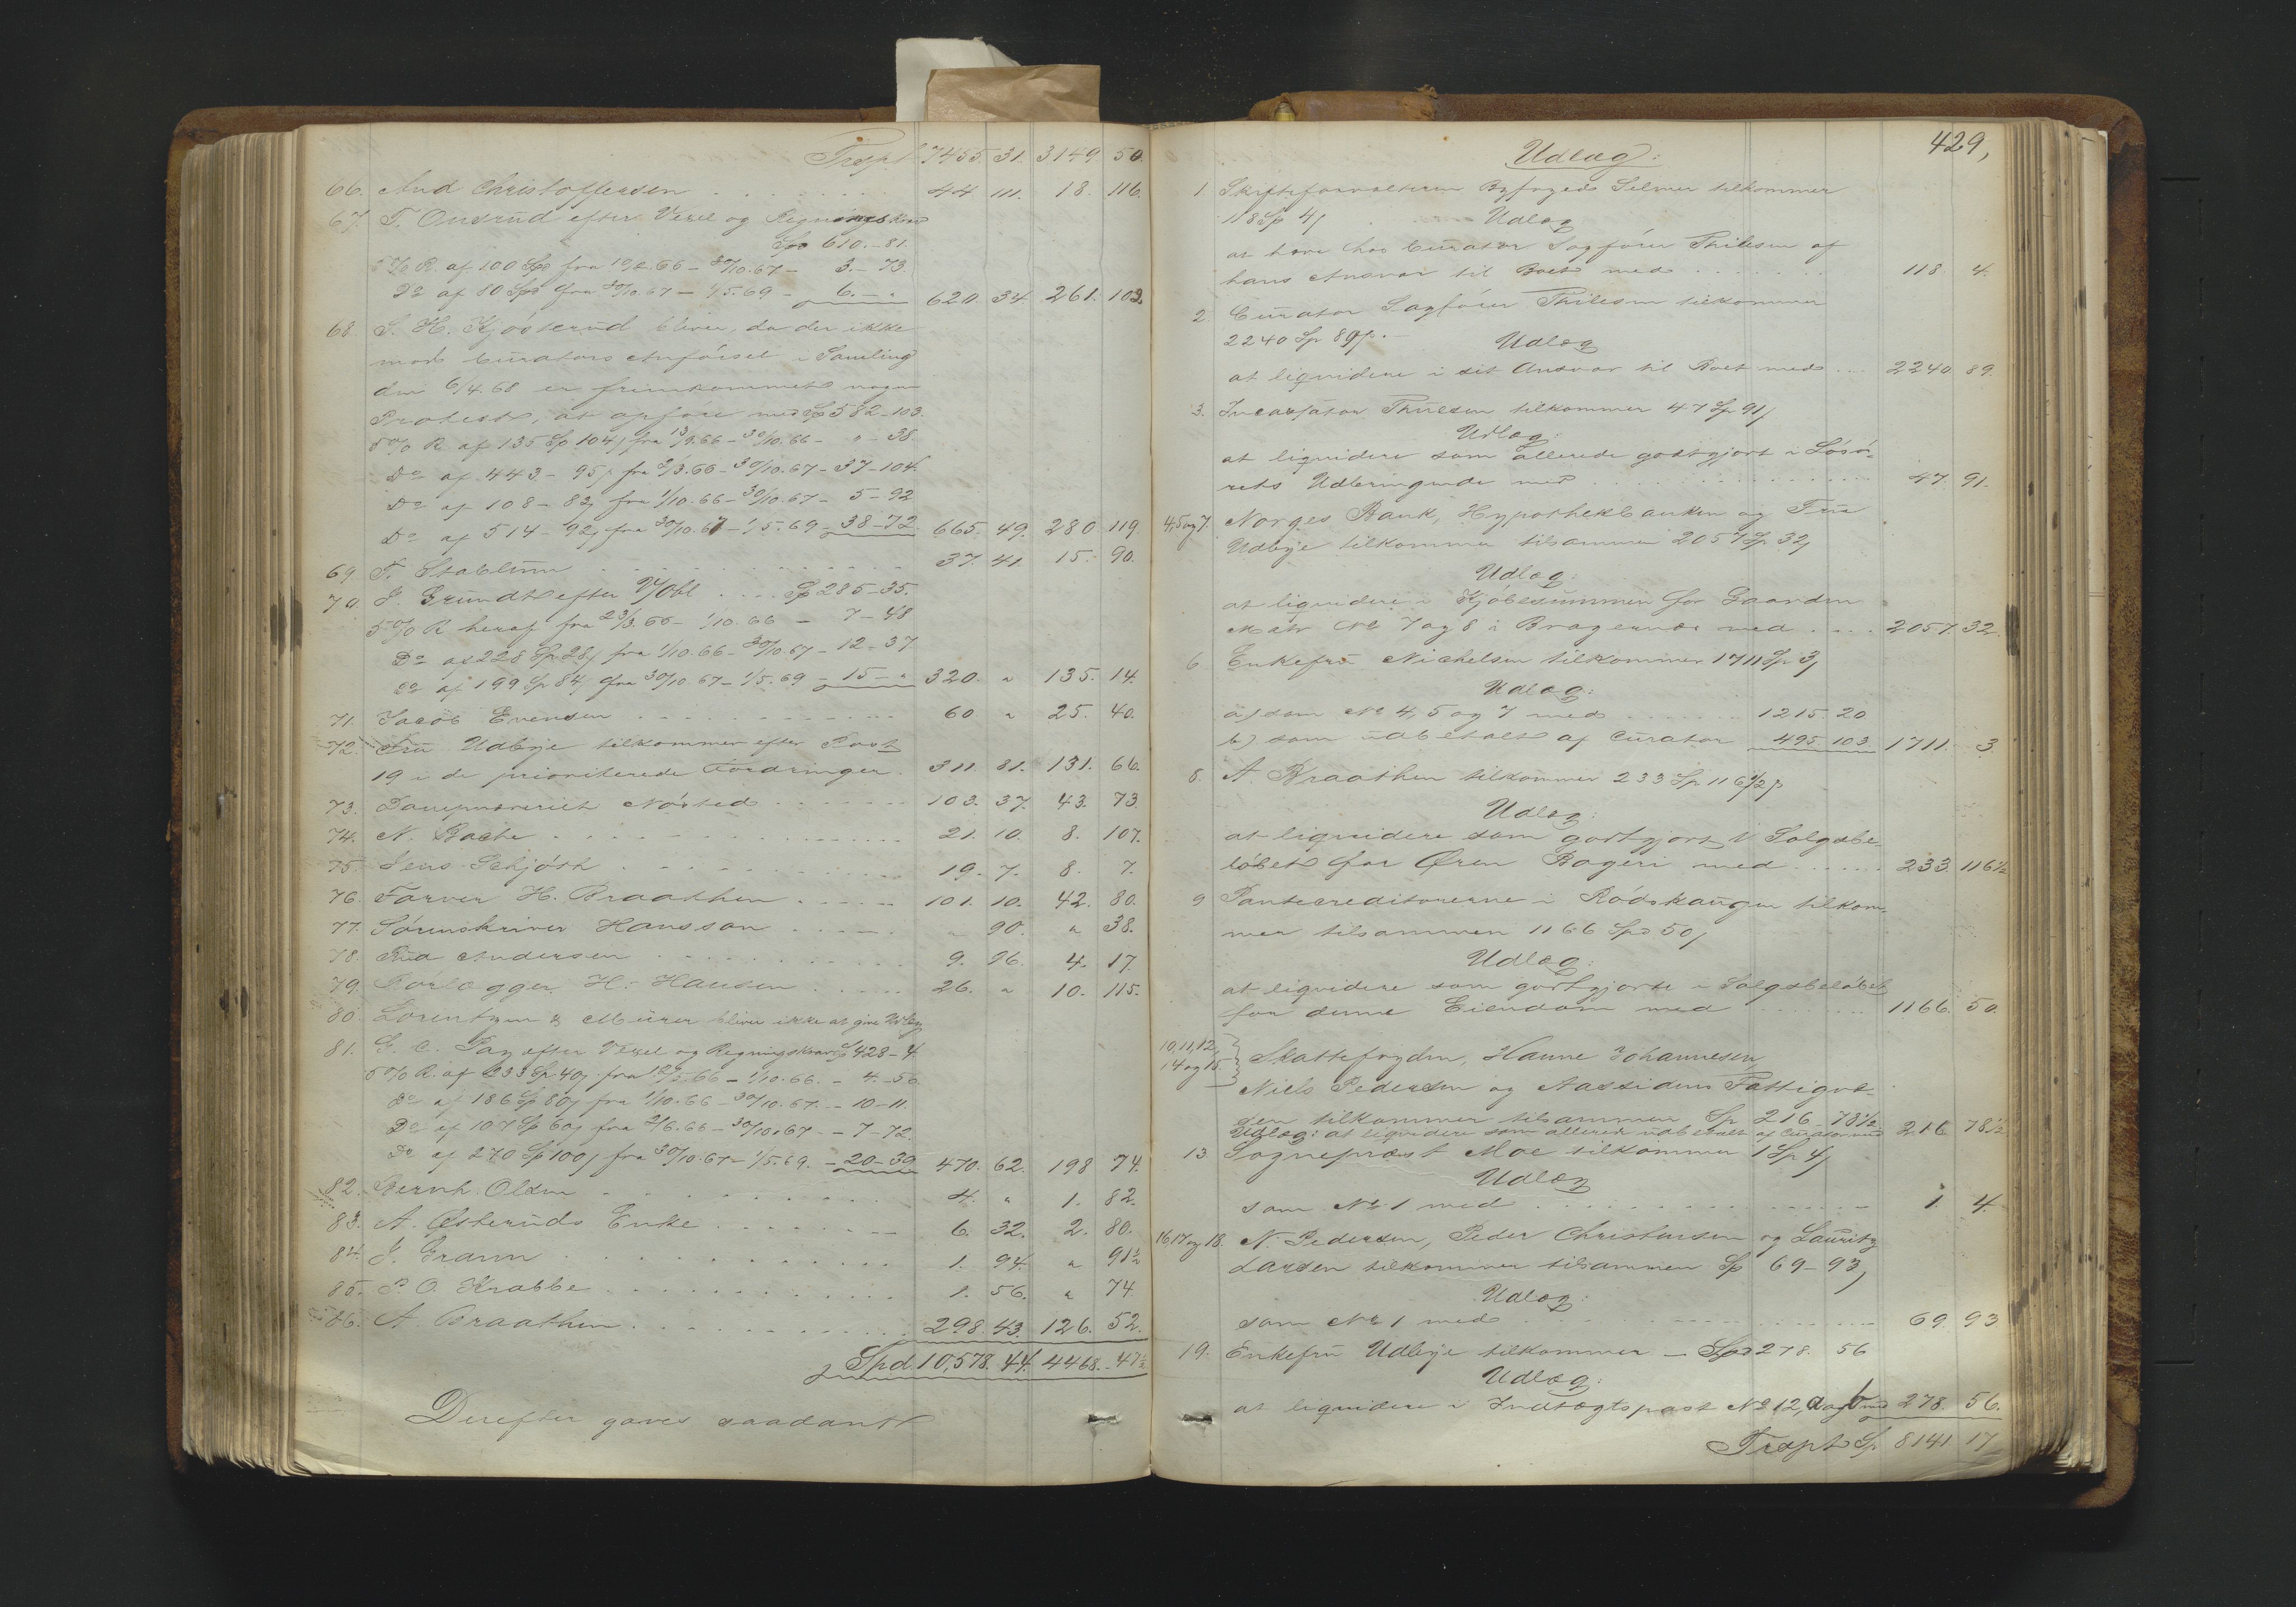 Trspt. 7455. 31. 3149 50.
66. And Christoffersen . . . . . . . 44 111. 18. 116.
67. T. Onsrud efter Vexel og Regningskrav
Spd 610.-81.
5 % R. af 100 Spd fra 10/2.66 - 30/10.67 - 3.-73.
Do af 80 Spd fra 30/10.67 - 1/5.69 - 6.-" 620. 34. 261. 102.
68. S. H. Kjøsterud bliver, da der ikke
mod Curators Anførsel i Samling
den 6/4.68 er fremkommet nogen
Protest, at opføre med Sp 582-103.
5 % R. af 135 Sp 104 fra 13/9.66 - 30/10.66 - " - 38.
Do af 443 - 95 fra 2/3.66 - 30/10.67 - 37-104.
Do af 108 - 82 fra 1/10.66 - 30/10.67 - 5-92
Do af 514 - 92 fra 30/10.67 - 1/5.69 - 38-72 665. 49. 280. 119.
69. T. Stablum . . . . . . . 37. 41. 15. 90.
70. J. Grundt efter Obl. . . . . Sp 285-35.
5 % R heraf fra 23/3.66 - 1/10.66 - 7-48
Do af 228 Sp 28 fra 1/10.66 - 30/10.67 - 12-37
Do af 199 Sp 84 fra 30/10.67 - 1/5.69 - 15-" 320. " 135. 14.
71. Jacob Evensen . . . . . . . 60 " 25. 40.
72. Fru Udbye tilkommer efter Post
19 i de prioriterede Fordringer. 311. 81. 131. 66.
73. Dampmøreriet Nøsted . . . . . . . 103. 37. 43. 73.
74. N. Bache . . . . . . . 21. 10. 8. 107.
75. Jens Schjøth . . . . . . . 19. 7. 8. 7.
76. Farver H. Braathen . . . . . 101. 10. 42. 80.
77. Sorenskriver Hansson . . . . . " 90. " 38.
78. Andersen . . . . . . . 9. 96. 4. 17.
79. Forlægger H. Hansen . . . . . 26. " 10. 115.
80. Lorentzen & Mürer bliver ikke at give Udlæg
81. G. C. Pay efter Vexel og Regningskrav Sp 428-4.
5 % R. af 233 Sp 40 fra 12/5.66 - 1/10.66. - 4.-56.
Do af 186 Sp 80 fra 1/10.66 - 30/10.67. - 10-11.
Do af 107 Sp 60 fra 2/6.66 - 30/10.67 - 7-72.
Do af 270 Sp 100 fra 30/10.67 - 1/5.69. - 20-39 470. 62. 198 74.
82. Bernh. Olsen . . . . . . . 4. " 1. 82.
83. A. Østeruds Enke . . . . . . . 6. 32. 2. 80.
84. J. Gram . . . . . . . 1. 94. " 91½
85. P. O. Krabbe . . . . . . . 1. 56. " 74
86. A. Braathen . . . . . . . 298. 43. 126. 52.
Spd. 10,578. 44. 4468.-47½
Derefter gaves saadant
429,
Udlæg:
1. Skifteforvalteren Byfoged Selmer tilkommer
118 Sp 4
Udlæg
at hæve hos Curator Sagfører Thilesen af
hans Ansvar til Boet med . . . . . . . 118. 4.
2. Curator Sagfører Thilesen tilkommer
2240 Sp 89. -
Udlæg
at liqvidere i sit Ansvar til Boet med . . . 2240 89.
3. Incassator Thuesen tilkommer 47 Sp 91
Udlæg:
at liqvidere som allerede godtgjort i Løsø-
rets Udbringende med . . . . . . . 47. 91.
4,5 og 7. Norges Bank, Hypothekbanken og Frue
Udbye tilkommer tilsammen 2057 Sp 32
Udlæg:
at liqvidere i Kjøbesummen for Gaarden
Matr No 7 og 8 i Bragernæs med . . . . 2057. 32.
6. Enkefru Nichelsen tilkommer 1711 Sp 3
Udlæg:
a) som No 4, 5 og 7 med . . . . . . . 1215. 20
b) som udbetalt af Curator 495 103 1711. 3.
8. A. Braathen tilkommer 233 Sp 116½
Udlæg:
at liqvidere som godtgjort i Salgsbe-
løbet for Øren Bageri med . . . . . 233. 116½
9 Pantecreditorerne i Rødskaugen tilkom-
mer tilsammen 1166 Spd 50
Udlæg:
at liqvidere som godtgjort i Salgsbeløbet
for denne Eiendom med . . . . . . . 1166. 50.
10,11,12,
14 og 15. } Skattefogden, Hanne Johannesen,
Niels Pedersen og Aassidens Fattigvæ-
sen tilkommer tilsammen Sp 216-78½
Udlæg: at liqvidere som allerede udbetalt af Curator med 216 78½
13. Sognepræst Moe tilkommer 1 Sp 4
Udlæg
som No 1 med . . . . . . . 1. 4.
16, 17 og 18. N. Pedersen, Peder Christensen og Lauritz
Larsen tilkommer tilsammen Sp 69-93
Udlæg:
som No 1 med . . . . . . . 69. 93
19. Enkefru Udbye tilkommer - Spd 278. 56
Udlæg:
at liqvidere i Indtægtspost No 12, a og b med 278. 56.
Trspt Sp 8141 17